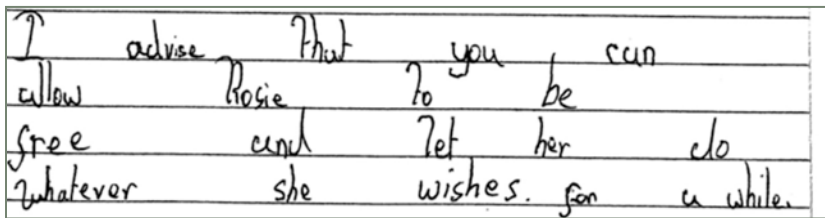 I advise that you can
allow Rosie to be
free and let her do
whatever she wishes. for a while.